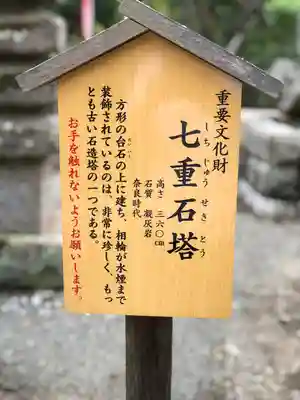 重要文化財
七重石塔
しちじゅうせきとう
高さ 三六〇㎝
石質 凝灰岩
奈良時代
方形の台石の上に建ち、相輪が水煙まで
だいいし
装飾されているのは、非常に珍しく、もっ
とも古い石造塔の一つである。
お手を触れないようお願いします。